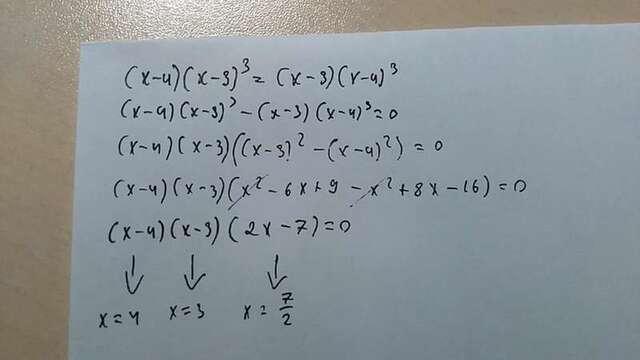 (x-4)(x-3)³=(x-3)(x-4)³
(x-4)(x-3)³-(x-3)(x-4)³=0
(x-4)(x-3)((x-3)²-(x-4)²)=0
(x-4)(x-3)(x²-6x+9-x²+8x-16)=0
(x-4)(x-3)(2x-7)=0
x=4 x=3 x=7/2